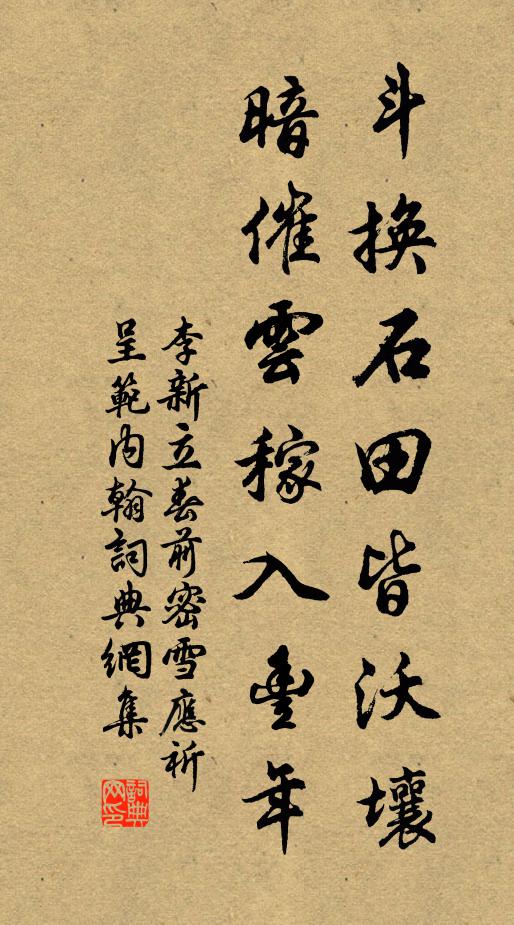 斗換石田皆沃壤
暗催雲稼入豐年
李新立春前密雪應祈
呈範內翰詞典網集
詞典网印